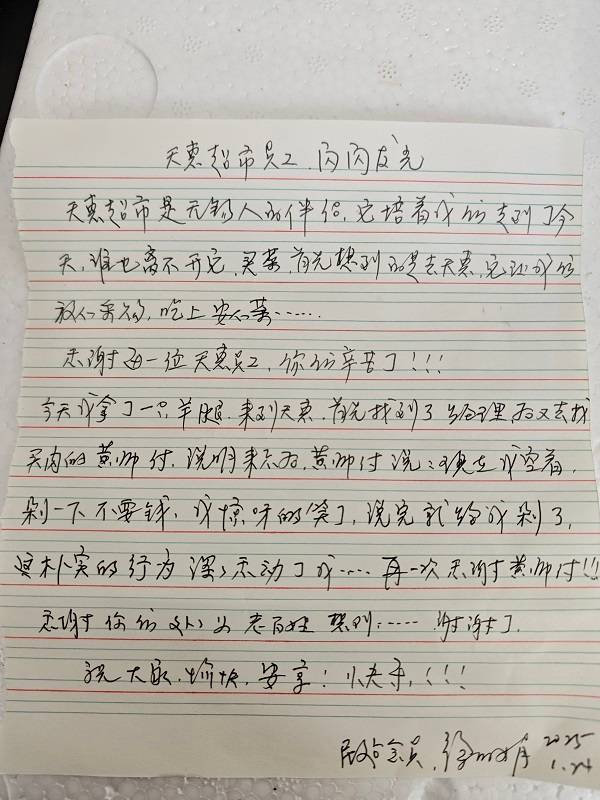 天惠超市员工,闪闪发光
天惠超市是无锡人的伴侣,它培着我们走到了今
天,谁也离不开它,买菜,首先想到的是去天惠,它让我们
放心采购,吃上安心菜……
感谢每一位天惠员工,你们辛苦了!!!
今天我拿了一只羊腿,来到天惠,首先找到了经理后又去找
买肉的黄师付,说明来意后,黄师付说:现在我空着,
剁一下不要钱,我惊呀的笑了,说完就给我剁了,
真朴实的行为深深感动了我……再一次感谢黄师付!!!
感谢你们处处为老百姓想到……谢谢了.
祝大家,愉快,安享!快乐,!!!
会员,徐
2025
1.24